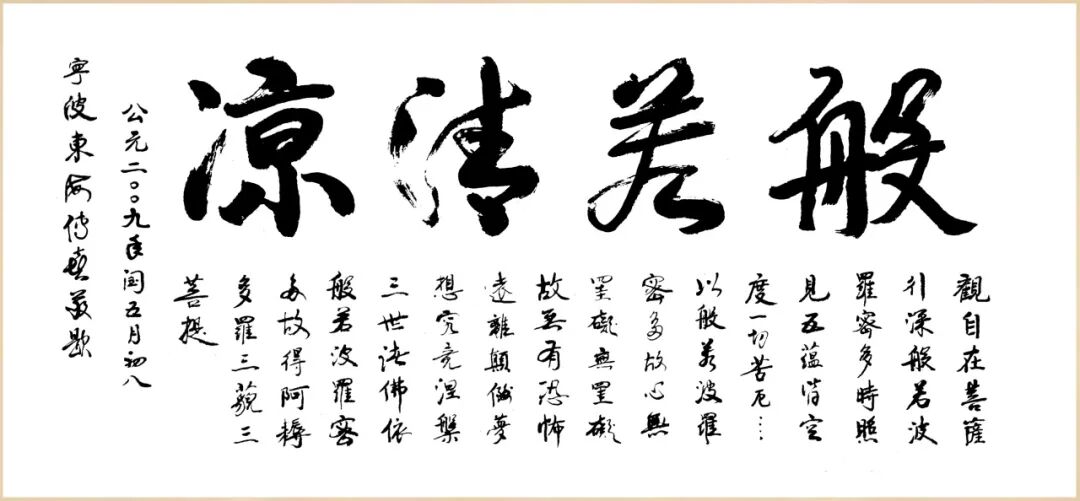 般若清涼
觀自在菩薩
行深般若波
羅密多時照
見五蘊皆空
度一切苦厄…
以般若波羅
密多故心無
罣礙無罣礙
故無有恐怖
遠離顛倒夢
想究竟涅槃
三世諸佛依
般若波羅密
多故得阿耨
多羅三藐三
菩提
公元二〇〇九年闰五月初八
寧波東海傳喜敬題